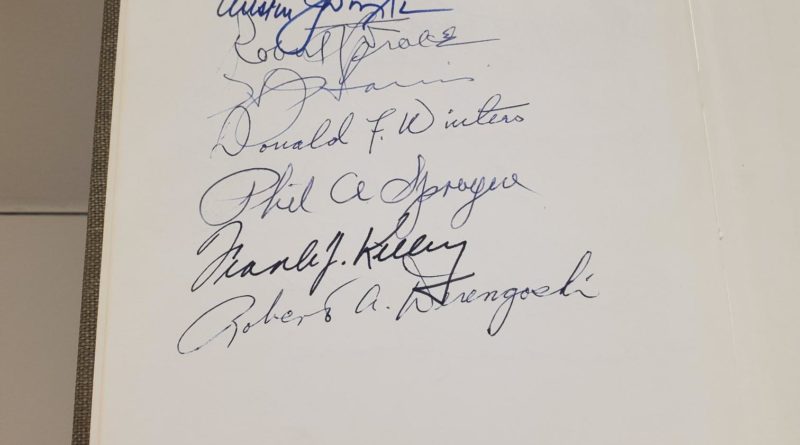 Austin
Robert
Harris
Donald F. Winters
Phil A Sprague
Frank J. Kelley
Robert A. Derengoski